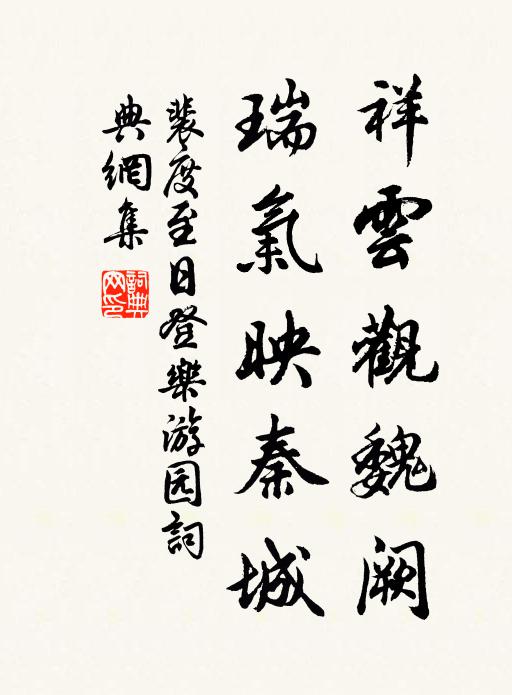 祥雲觀魏闕
瑞氣映秦城
裴度至日登樂游园詞
典網集
詞典网印